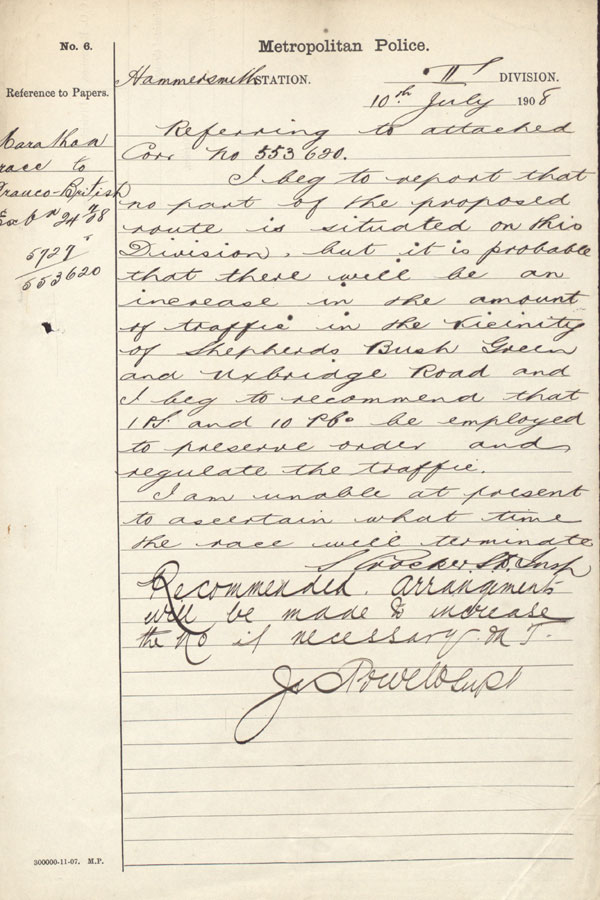 No. 6.
Metropolitan Police.
Hammersmith STATION. "T" DIVISION.
Reference to Papers.
10th July 1908
Marathon
race to
Franco-British
Exbn 24/7/08
5727
553620
Referring to attached
Corr No 553620.
I beg to report that
no part of the proposed
route is situated on this
Division, but it is probable
that there will be an
increase in the amount
of traffic in the vicinity
of Shepherds Bush Green
and Uxbridge Road and
I beg to recommend that
1 PS. and 10 PCs be employed
to preserve order and
regulate the traffic.
I am unable at present
to ascertain what time
the race will terminate
S Crocker. S.D. Insp
Recommended. Arrangements
will be made to increase
the No if necessary. on T.
Powell Supt
300000-11-07. M.P.